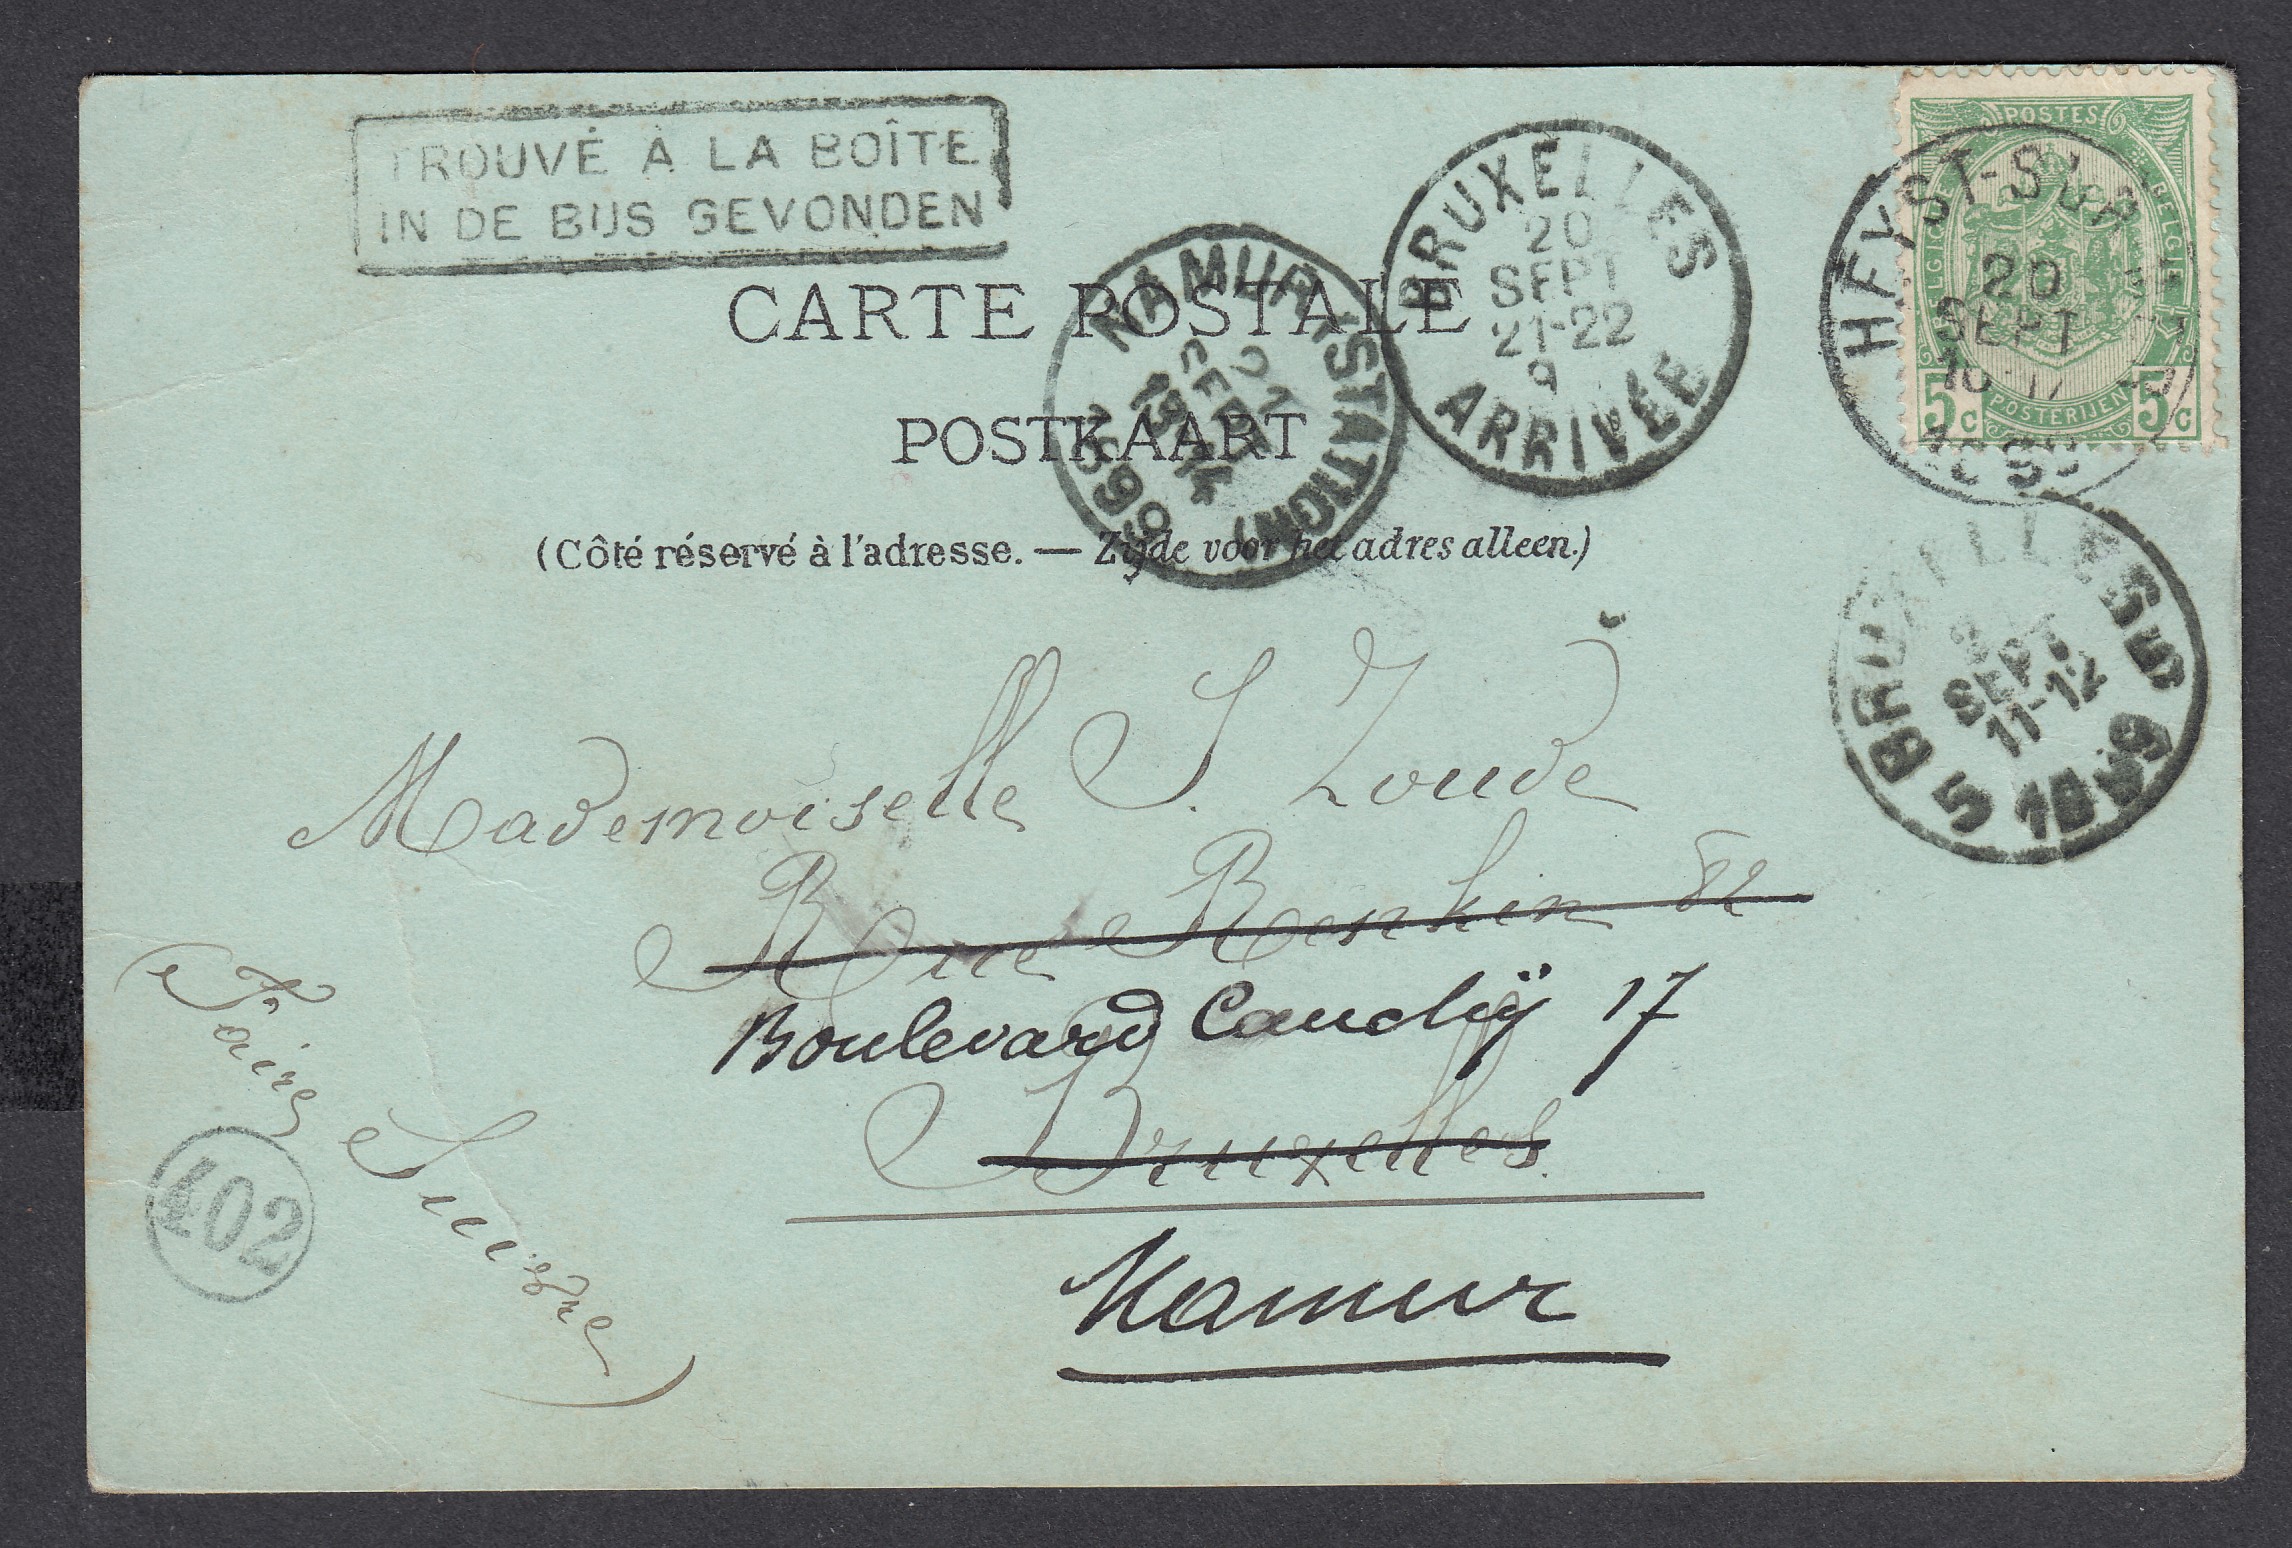 TROUVÉ À LA BOÎTE
IN DE BUS GEVONDEN
CARTE POSTALE
POSTKAART
(Côté réservé à l'adresse. — Zijde voor het adres alleen.)
NAMUR (STATION)
21
SEPT
13-14
1899
BRUXELLES
20
SEPT
21-22
9
ARRIVÉE
POSTES
BELGIQUE
BELGIË
5c
POSTERIJEN
5c
HEYST-SUR
20
SEPT
16-17
BRUXELLES 5
SEPT
11-12
1899
5
Mademoiselle S. Zoude
Rue Renkin 82
Boulevard Cauchÿ 17
Bruxelles.
Namur
Faire Suivre
402